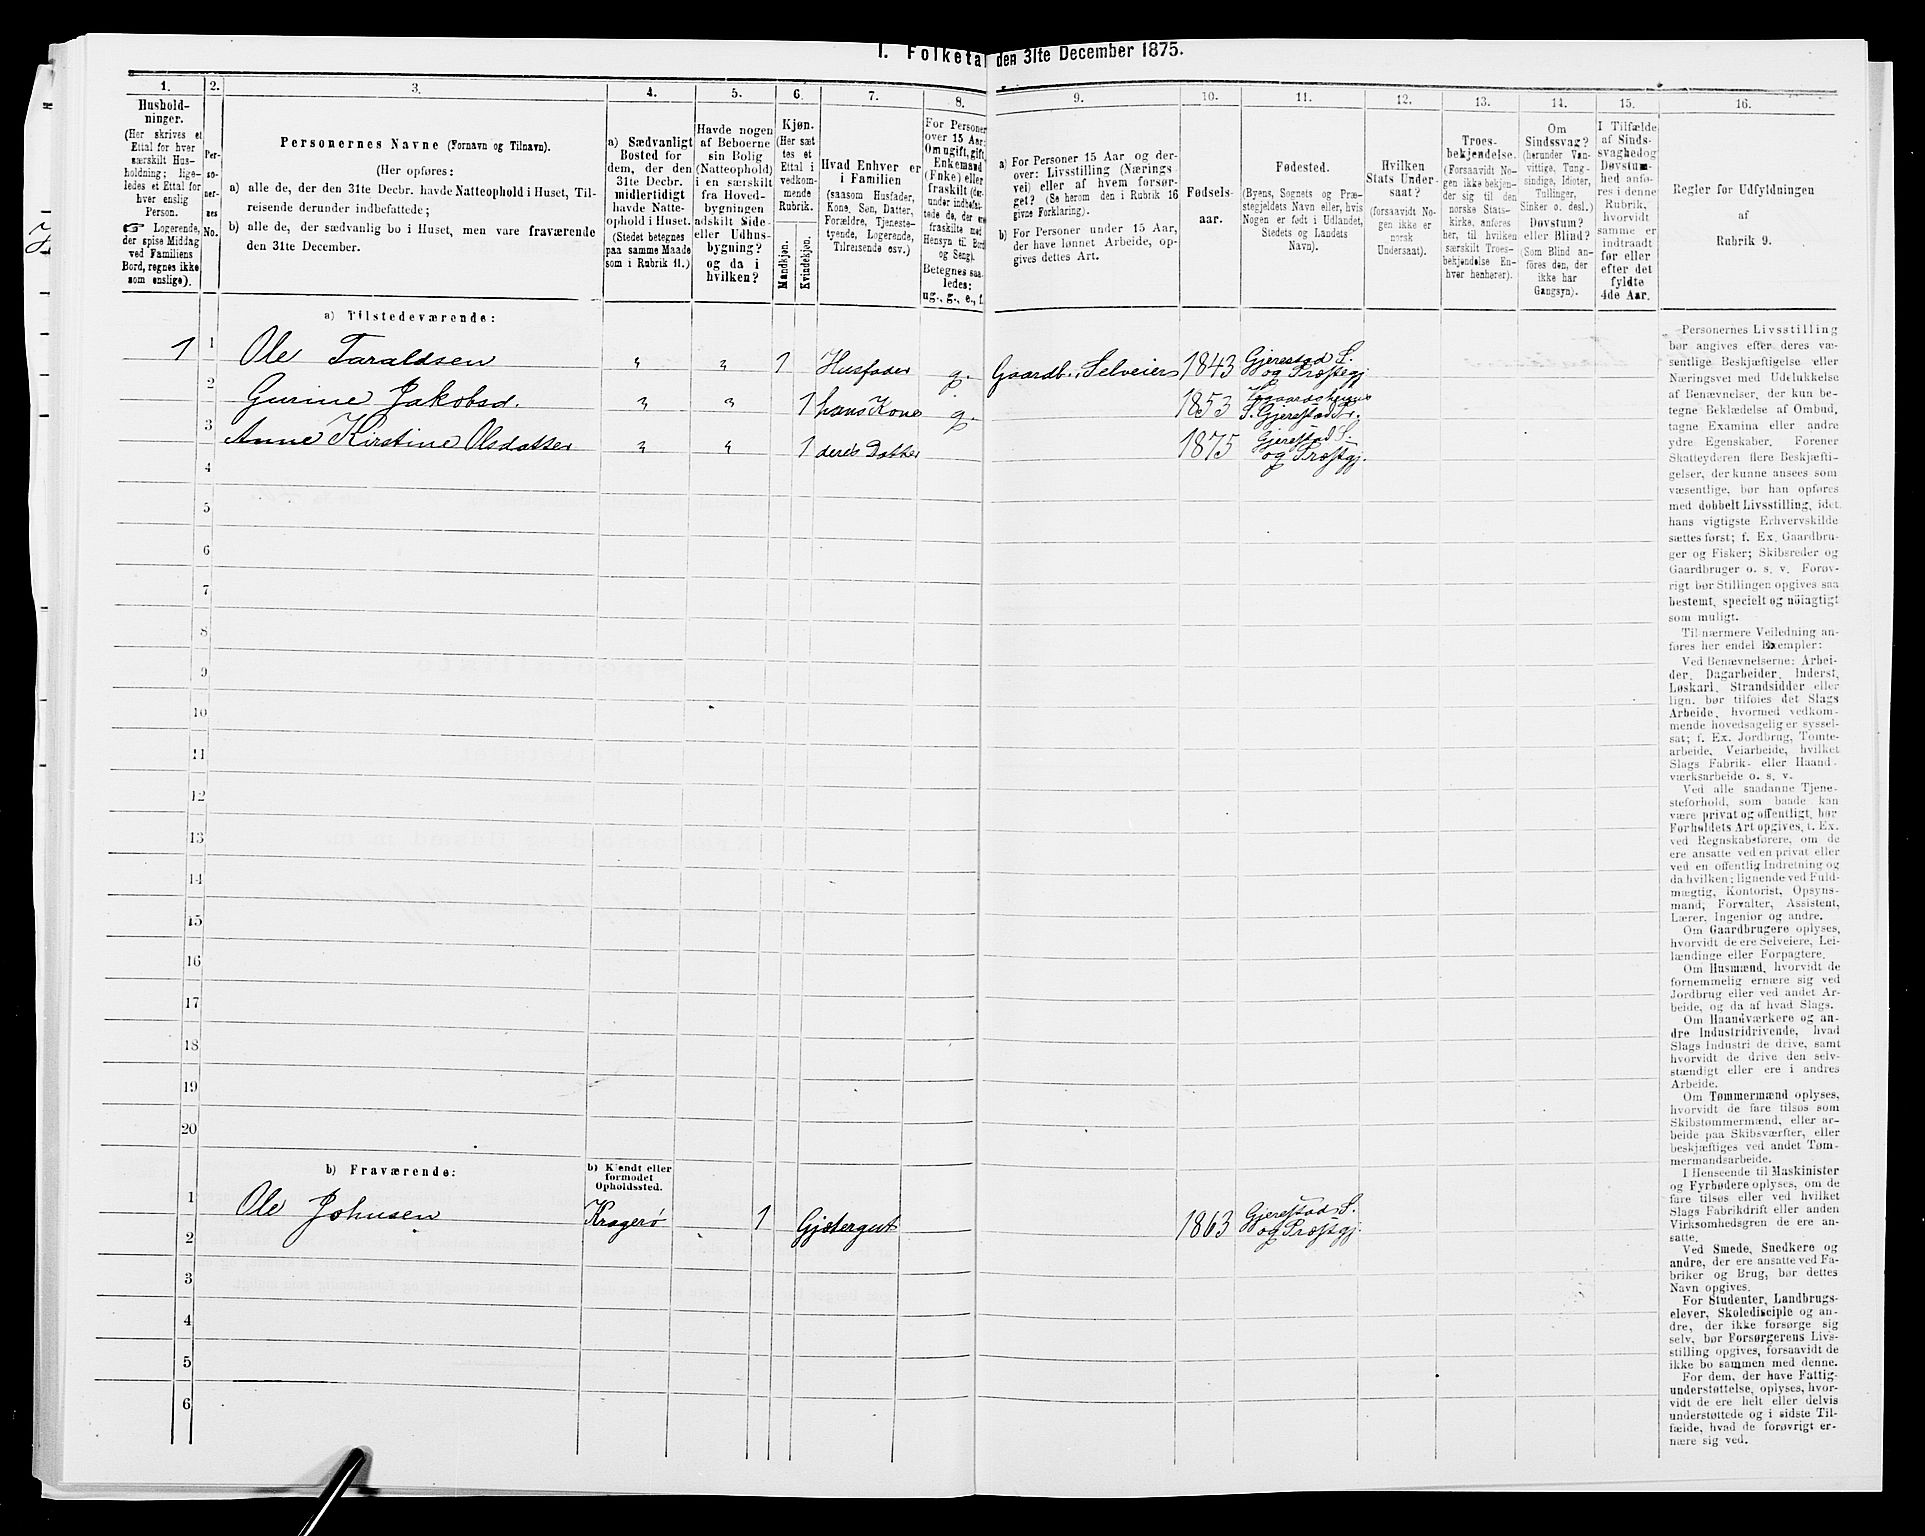 I. Folketal den 31te December 1875.
1.
Hushold-
ninger.
(Her skrives et
Ettal for hver
særskilt Hus-
holdning; lige-
ledes et Ettal for
hver enslig
Person.
☞ Logerende,
der spise Middag
ved Familiens
Bord, regnes ikke
som enslige).
2.
Per-
so-
ner-
nes
No.
3.
Personernes Navne (Fornavn og Tilnavn).
(Her opføres:
a) alle de, der den 31te Decbr. havde Natteophold i Huset, Til-
reisende derunder indbefattede;
b) alle de, der sædvanlig bo i Huset, men vare fraværende
den 31te December.
4.
a) Sædvanligt
Bosted for
dem, der den
31te Decbr.
midlertidigt
havde Natte-
ophold i Huset.
(Stedet betegnes
paa samme Maade
som i Rubrik 11.)
5.
Havde nogen
af Beboerne
sin Bolig
(Natteophold)
i en særskilt
fra Hoved-
bygningen
adskilt Side-
eller Udhus-
bygning?
og da i
hvilken?
6.
Kjøn.
(Her sæt-
tes et
Ettal i
vedkom-
mende
Rubrik.
Mandkjøn.
Kvindekjøn.
7.
Hvad Enhver er
i Familien
(saasom Husfader,
Kone, Søn, Datter,
Forældre, Tjeneste-
tyende, Logerende,
Tilreisende osv.)
8.
For Personer
over 15 Aar:
Om ugift, gift,
Enkemand
(Enke) eller
fraskilt (der-
under indbefat-
tede de, der ere
fraskilte med
Hensyn til Bord
og Seng).
Betegnes saa-
ledes:
ug., g., e., f.
9.
a) For Personer 15 Aar og der-
over: Livsstilling (Nærings-
vei) eller af hvem forsør-
get? (Se herom den i Rubrik 16
givne Forklaring).
b) For Personer under 15 Aar,
der have lønnet Arbeide, op-
gives dettes Art.
10.
Fødsels-
aar.
11.
Fødested.
(Byens, Sognets og Præ-
stegjeldets Navn eller, hvis
Nogen er født i Udlandet,
Stedets og Landets
Navn).
12.
Hvilken
Stats Under-
saat?
(forsaavidt No-
gen ikke er
norsk
Undersaat).
13.
Troes-
bekjendelse.
(Forsaavidt No-
gen ikke bekjen-
der sig til den
norske Stats-
kirke, anføres
her, til hvilken
særskilt Troes-
bekjendelse En-
hver henhører).
14.
Om
Sindssvag?
(herunder Van-
vittige, Tung-
sindige, Idioter,
Tullinger,
Sinker o. desl.)
Døvstum?
eller Blind?
(Som Blind an-
føres den, der
ikke har
Gangsyn).
15.
I Tilfælde
af Sinds-
svaghed og
Døvstum-
hed anfø-
res i denne
Rubrik,
hvorvidt
samme er
indtraadt
før eller
efter det
fyldte
4de Aar.
16.
Regler for Udfyldningen
af
Rubrik 9.
a) Tilstedeværende:
1 1 Ole Taraldsen " " 1 Husfader g. Gaardb. Selveier 1843 Gjerestad S. og Præstegj.
2 Gurine Jakobsd. " " 1 hans Kone g. 1853 S. Gjerestad Pr.
3 Anne Kirstine Olsdatter " " 1 deres Datter 1875 Gjerestad S. og Præstgj.
4
5
6
7
8
9
10
11
12
13
14
15
16
17
18
19
20
b) Fraværende:
b) Kjendt eller
formodet
Opholdssted.
1 Ole Johnsen Kragerø 1 Gjetergut 1863 Gjerestad S. og Præstgj.
2
3
4
5
6
Personernes Livsstilling
bør angives efter deres væ-
sentlige Beskjæftigelse eller
Næringsvei med Udelukkelse
af Benævnelser, der kun be-
tegne Beklædelse af Ombud,
tagne Examina eller andre
ydre Egenskaber. Forener
Skatteyderen flere Beskjæfti-
gelser, der kunne ansees som
væsentlige, bør han opføres
med dobbelt Livsstilling, idet
hans vigtigste Erhvervskilde
sættes først; f. Ex. Gaardbru-
ger og Fisker; Skibsreder og
Gaardbruger o. s. v. Forøv-
rigt bør Stillingen opgives saa
bestemt, specielt og nöiagtigt
som muligt.
Til nærmere Veiledning an-
føres her endel Exempler:
Ved Benævnelserne: Arbei-
der, Dagarbeider, Inderst,
Løskarl, Strandsidder eller
lign. bør tilføies det Slags
Arbeide, hvormed vedkom-
mende hovedsagelig er syssel-
sat; f. Ex. Jordbrug, Tomte-
arbeide, Veiarbeide, hvilket
Slags Fabrik- eller Haand-
værksarbeide o. s. v.
Ved alle saadanne Tjene-
steforhold, som baade kan
være privat og offentligt, bør
Forholdets Art opgives, f. Ex.
ved Regnskabsførere, om de
ere ansatte ved en privat eller
ved en offentlig Indretning og
da hvilken; lignende ved Fuld-
mægtig, Kontorist, Opsyns-
mand, Forvalter, Assistent,
Lærer, Ingeniør og andre.
Om Gaardbrugere oplyses,
hvorvidt de ere Selveiere, Lei-
lændinge eller Forpagtere.
Om Husmænd, hvorvidt de
fornemmelig ernære sig ved
Jordbrug eller ved andet Ar-
beide, og da af hvad Slags.
Om Haandværkere og an-
dre Industridrivende, hvad
Slags Industri de drive, samt
hvorvidt de drive den selv-
stændigt eller ere i andres
Arbeide.
Om Tømmermænd oplyses,
hvorvidt de fare tilsøs som
Skibstømmermænd, eller ar-
beide paa Skibsværfter, eller
beskjæftiges ved andet Tøm-
mermandsarbeide.
I Henseende til Maskinister
og Fyrbødere oplyses, om de
fare tilsøs eller ved hvilket
Slags Fabrikdrift eller anden
Virksomhedsgren de ere an-
satte.
Ved Smede, Snedkere og
andre, der ere ansatte ved Fa-
briker og Brug, bør dettes
Navn opgives.
For Studenter, Landbrugs-
elever, Skoledisciple og an-
dre, der ikke forsørge sig
selv, bør Forsørgerens Livs-
stilling opgives, forsaavidt de
ikke bo sammen med denne.
For dem, der have Fattig-
understøttelse, oplyses, hvor-
vidt de ere helt eller delvis
understøttede og i sidste Til-
fælde, hvad de forøvrigt er-
nære sig ved.